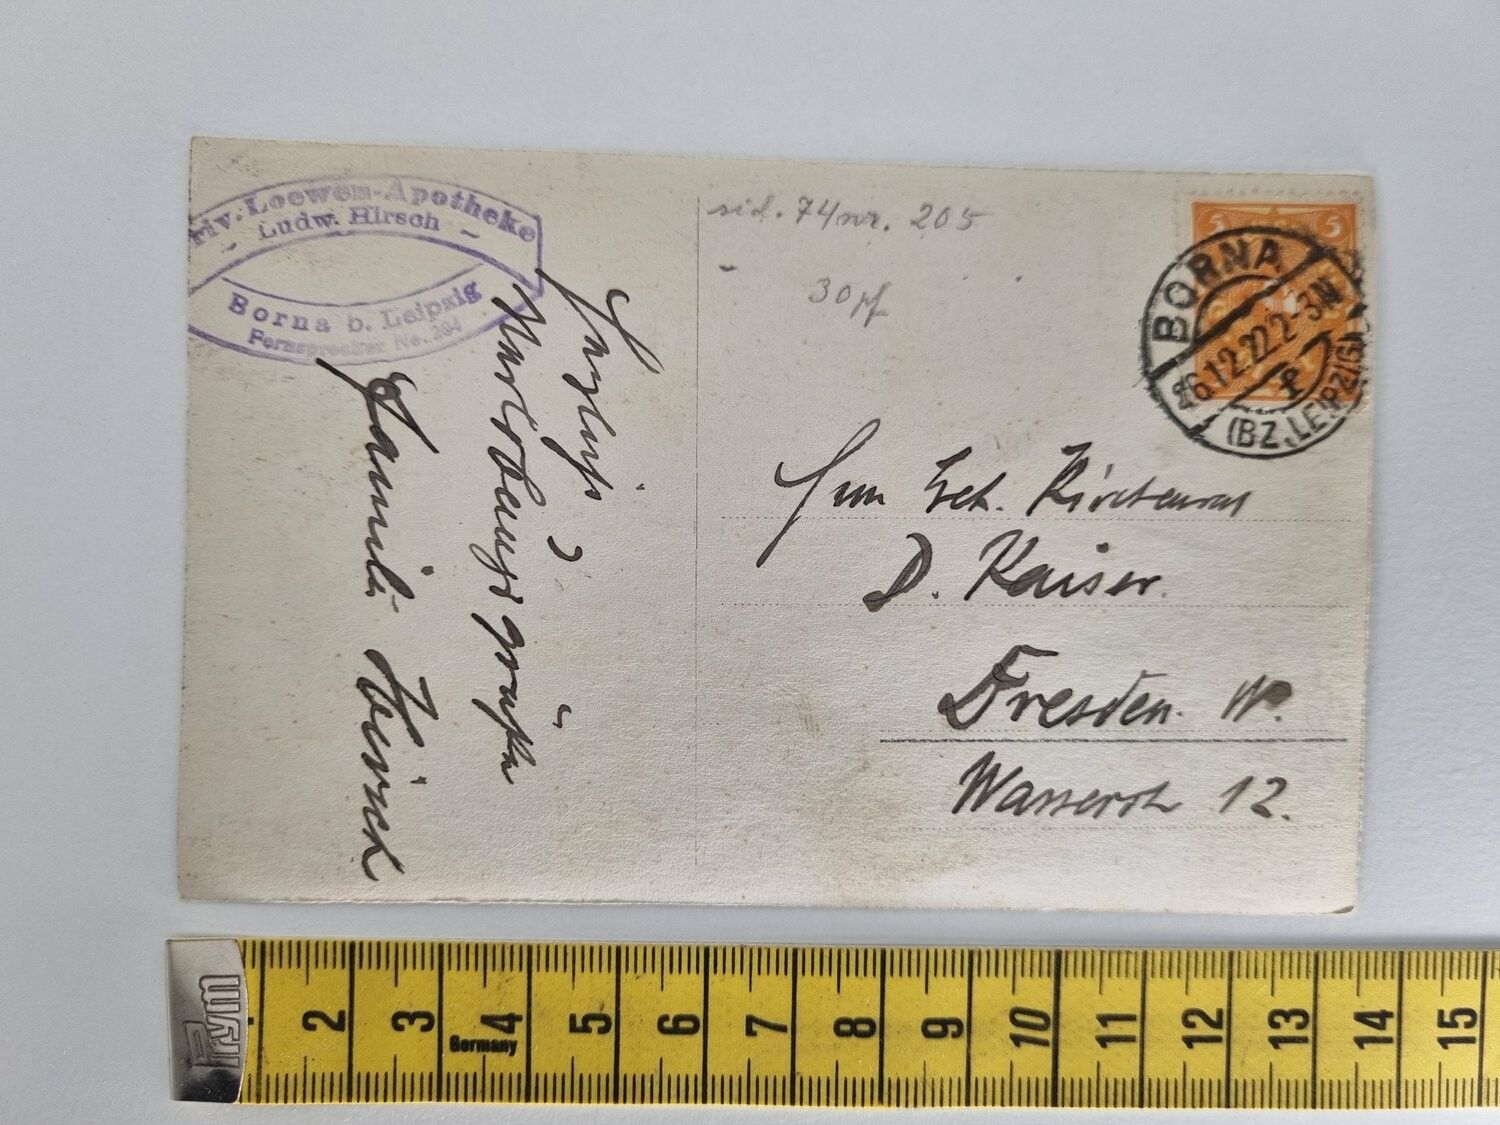 Priv. Loewen-Apotheke
Ludw. Hirsch
Borna b. Leipzig
Fernsprecher No. 294
Herzlichste
Neujahrsgrüße
Familie Hirsch
5 5
BORNA
26.12.22 2-3N
(BZ. LEIPZIG)
30 pf
Herrn Geh. Kirchenrat
D. Kaiser.
Dresden. W.
Wasserstr 12.
Prym
2 3 4 5 6 7 8 9 10 11 12 13 14 15
Germany